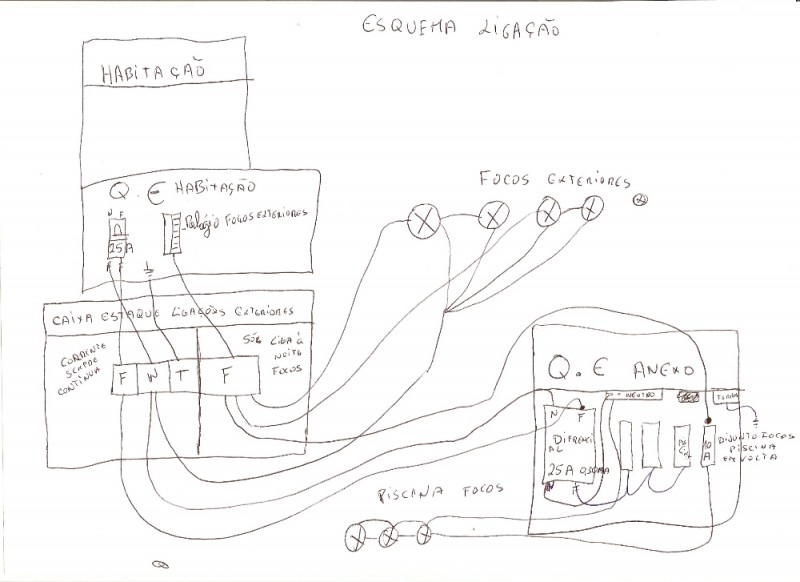 ESQUEMA LIGAÇÃO
HABITAÇÃO
Q.E HABITAÇÃO
N F
25 A
Relógio FOCOS EXTERIORES
FOCOS EXTERIORES
CAIXA ESTAQUE LIGAÇÕES EXTERIORES
CORRENTE
SEMPRE
CONTÍNUA
SÓB LIGA À
NOITE
FOCOS
F N T F
Q.E ANEXO
NEUTRO
TERRA
N F
DIFRENCI
AL
25 A
F
10
A
DIJUNTO FOCOS
PISCINA
EM VOLTA
PISCINA FOCOS